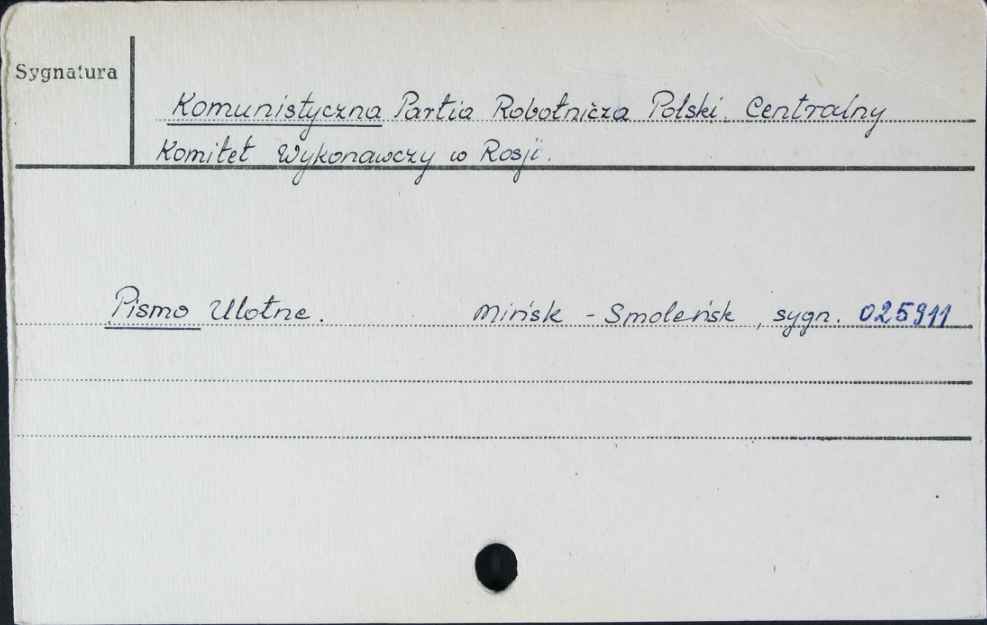 Sygnatura
Komunistyczna Partia Robotnicza Polski. Centralny
Komitet Wykonawczy w Rosji.
Pismo Ulotne. Mińsk - Smoleńsk, sygn. 025911